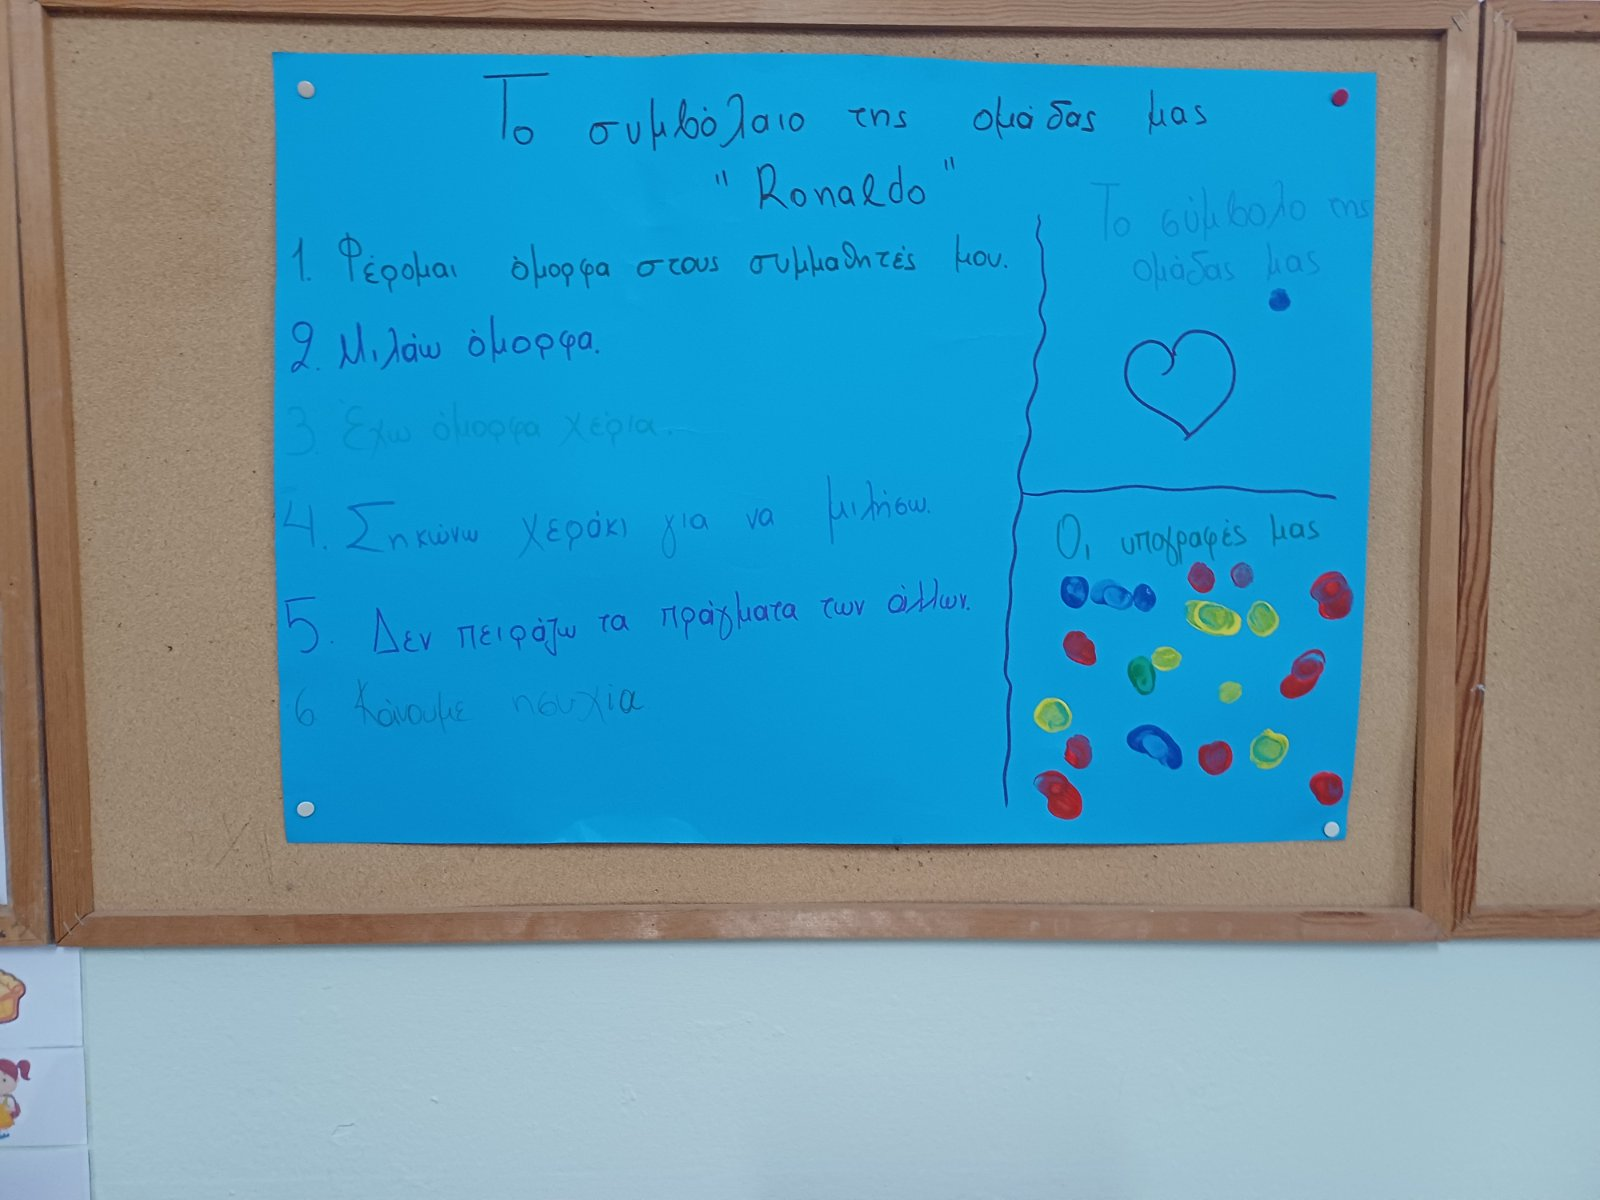 Το συμβόλαιο της ομάδας μας
"Ronaldo"
1. Φέρομαι όμορφα στους συμμαθητές μου.
2. Μιλάω όμορφα.
3. Έχω όμορφα χέρια.
4. Σηκώνω χεράκι για να μιλήσω.
5. Δεν πειράζω τα πράγματα των άλλων.
6 Κάνουμε ησυχία
Το σύμβολο της
ομάδας μας
Οι υπογραφές μας